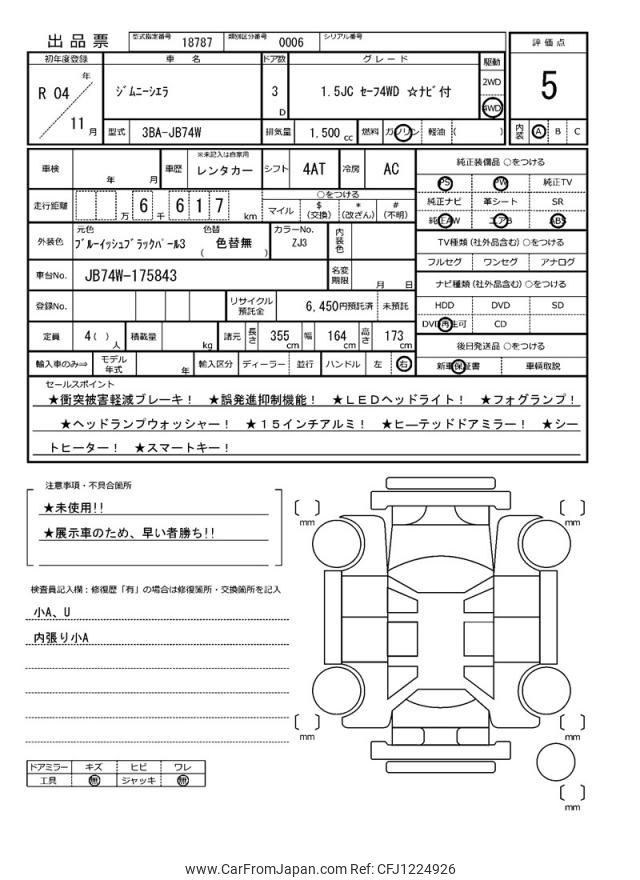 出品票 型式指定番号 18787 類別区分番号 0006 シリアル番号
評価点
5
内装 A B C
初年度登録 車名 ドア数 グレード 駆動
R 04 年 11 月
ジムニーシエラ 3 D 1.5JC セーフ4WD ☆ナビ付
2WD
4WD
型式 3BA-JB74W 排気量 1.500 cc 燃料 ガソリン 軽油 ( )
車検 年 月 車歴 ※未記入は自家用 レンタカー シフト 4AT 冷房 AC
走行距離 万 6 千 6 1 7 km
○をつける
マイル $ (交換) * (改ざん) # (不明)
外装色 元色 ブルーイッシュブラックパール3 色替 ( 色替無 ) カラーNo. ZJ3 内装色
車台No. JB74W-175843 名変期限 月 日
登録No. リサイクル預託金 6,450円預託済 未預託
定員 4( ) 人 積載量 kg 諸元 長さ 355 cm 幅 164 cm 高さ 173 cm
輸入車のみ⇒ モデル年式 年 輸入区分 ディーラー 並行 ハンドル 左 右
純正装備品 ○をつける
PS PW 純正TV
純正ナビ 革シート SR
純正AW エアB ABS
TV種類 (社外品含む) ○をつける
フルセグ ワンセグ アナログ
ナビ種類 (社外品含む) ○をつける
HDD DVD SD
DVD再生可 CD
後日発送品 ○をつける
新車保証書 車輌取説
セールスポイント
★衝突被害軽減ブレーキ! ★誤発進抑制機能! ★LEDヘッドライト! ★フォグランプ!
★ヘッドランプウォッシャー! ★15インチアルミ! ★ヒーテッドドアミラー! ★シー
トヒーター! ★スマートキー!
注意事項・不具合箇所
★未使用!!
★展示車のため、早い者勝ち!!
検査員記入欄:修復歴「有」の場合は修復箇所・交換箇所を記入
小A、U
内張り小A
ドアミラー キズ ヒビ ワレ
工具 無 ジャッキ 無
mm
mm
mm
mm
mm
www.CarFromJapan.com Ref: CFJ1224926